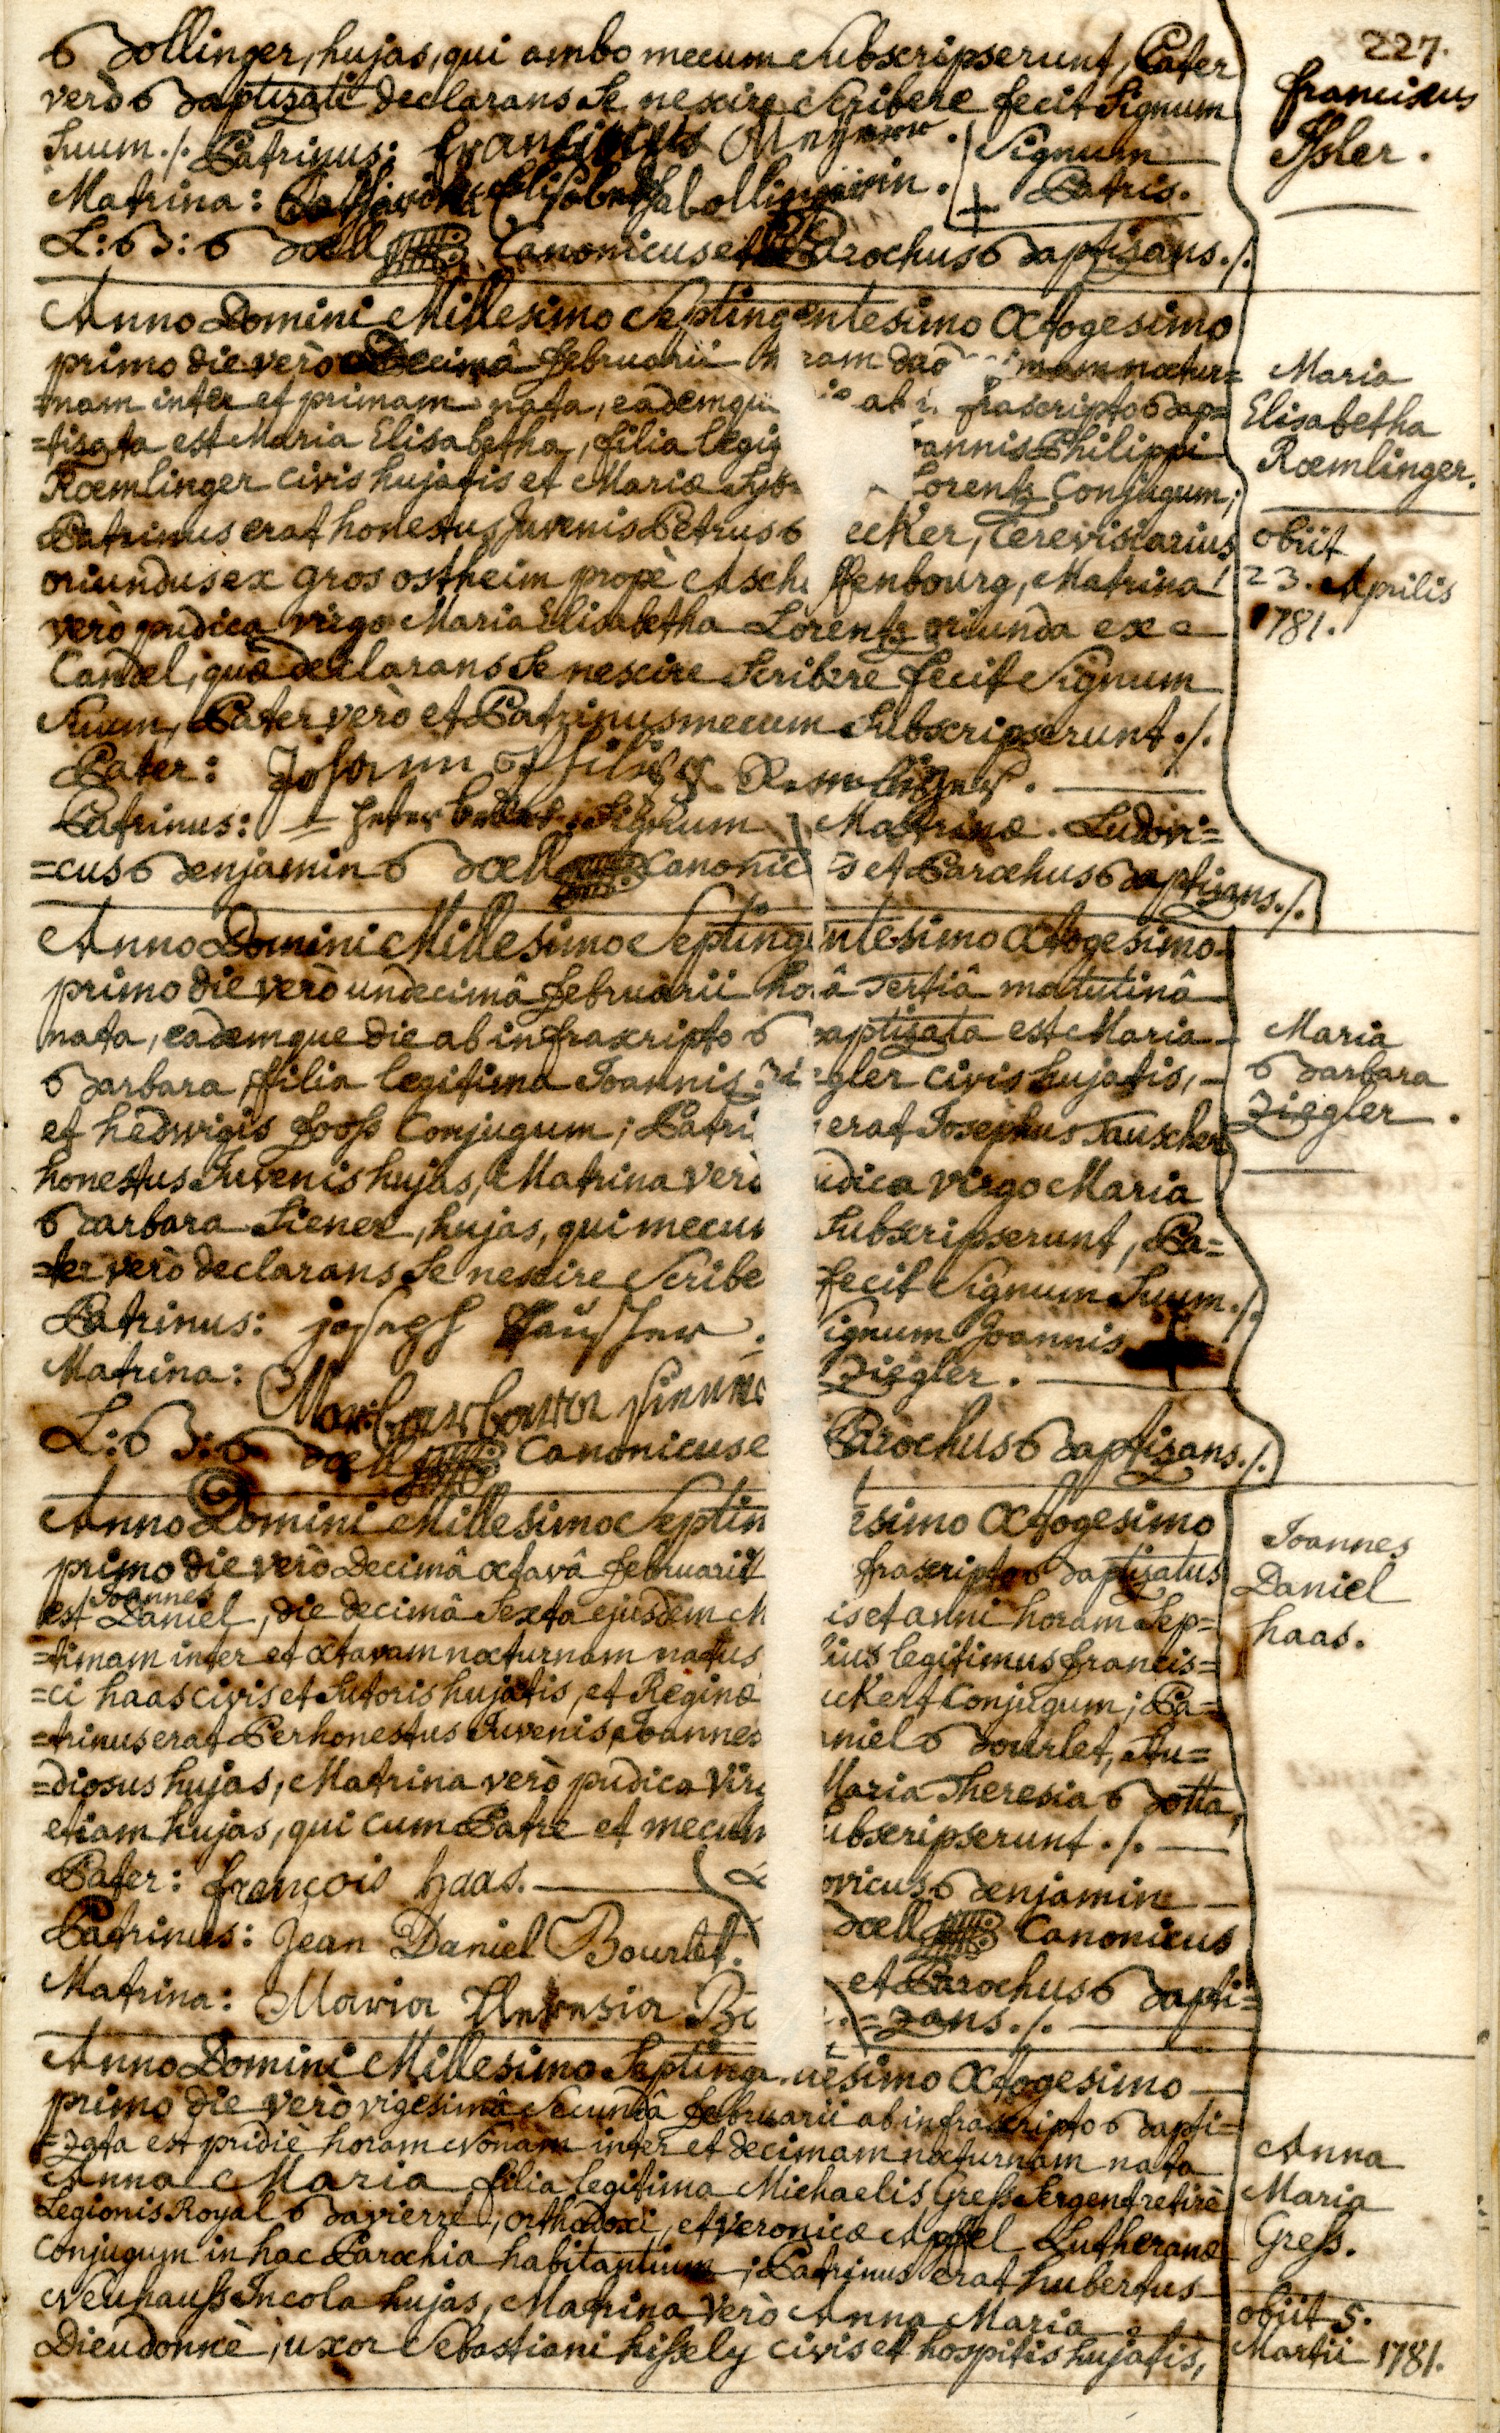 227.
Bollinger, hujas, qui ambo mecum Subscripserunt, Pater
verò Baptizati declarans Se nescire Scribere fecit Signum
Suum ./. Patrinus: Franciscus Meyer . Signum
Matrina: Catharina Elisabetha bollingerin. + Patris.
L: B: Boell Canonicus et Parochus Baptizans ./.
Franciscus
Isler.
Anno Domini Millesimo Septingentesimo Octogesimo
primo die verò Decimâ Februarii ram duo mam noctur=
=nam inter et primam nata, eademqu ab i frascripto Bap=
=tizata est Maria Elisabetha, filia legi annis Philippi
Roemlinger civis hujatis et Mariæ Syb Lorentz Conjugum;
Patrinus erat honestus Juvenis Petrus B ecker, Cerevisiarius
oriundus ex gros ostheim propè Asch ffenbourg, Matrina
verò pudica virgo Maria Elisabetha Lorentz oriunda ex
Candel, quæ declarans Se nescire Scribere fecit Signum
Suum, Pater verò et Patrinus mecum Subscripserunt ./.
Pater: Johann Philipp Roemlinger.
Patrinus: Peter becker. Signum Matrinæ. Ludovi=
=cus Benjamin Boell Canonic s et Parochus Baptizans ./.
Maria
Elisabetha
Roemlinger.
obiit
23. Aprilis
1781.
Anno Domini Millesimo Septing ntesimo Octogesimo
primo die verò undecimâ Februarii ho â Tertiâ matutinâ
nata, eademque die ab infrascripto baptizata est Maria
Barbara, filia legitima Joannis Zi egler civis hujatis,
et hedwigis Jooss Conjugum; Patri erat Josephus Tauscher
honestus Juvenis hujas, Matrina verò udica virgo Maria
Barbara Siener, hujas, qui mecum Subscripserunt, Pa=
=ter verò declarans Se nescire Scribe fecit Signum Suum ./.
Patrinus: joseph Tauscher. ignum Joannis +
Matrina: Ziegler.
L: B: Boell Canonicus e Parochus Baptizans ./.
Maria
Barbara
Ziegler.
Anno Domini Millesimo Septin esimo Octogesimo
primo die verò Decimâ octavâ Februarii frascripto Baptizatus
est Joannes Daniel, die decimâ Sexta ejusdem M is et anni horam Sep=
=timam inter et octavam nocturnam natus lius legitimus Francis=
=ci haas civis et Sutoris hujatis, et Reginæ uckert Conjugum; Pa=
=trinus erat Perhonestus Juvenis Joannes niel Bourlet, Stu=
=diosus hujas, Matrina verò pudica Vir Maria Theresia Botta,
etiam hujas, qui cum Patre et mecum ubscripserunt ./.
Pater: françois haas. L ovicus Benjamin
Patrinus: Jean Daniel Bourlet. Boell Canonicus
Matrina: Maria Theresia Bo et Parochus Bapti=
=zans ./.
Joannes
Daniel
haas.
Anno Domini Millesimo Septinge nesimo Octogesimo
primo die verò vigesimâ Secundâ Februarii ab infrascripto Bapti=
=zata est pridiè horam Nonam inter et decimam nocturnam nata
Anna Maria filia legitima Michaelis Gress Sergent retiré
Legionis Royal Bavierre, orthodoxi, et Veronicæ Apffel Lutheranæ
Conjugum in hac Parochia habitantium; Patrinus erat hubertus
Neuhauss Incola hujas, Matrina verò Anna Maria
Dieudonnè, uxor Sebastiani hissely civis et hospitis hujatis,
Anna
Maria
Gress.
obiit 5.
Martii 1781.